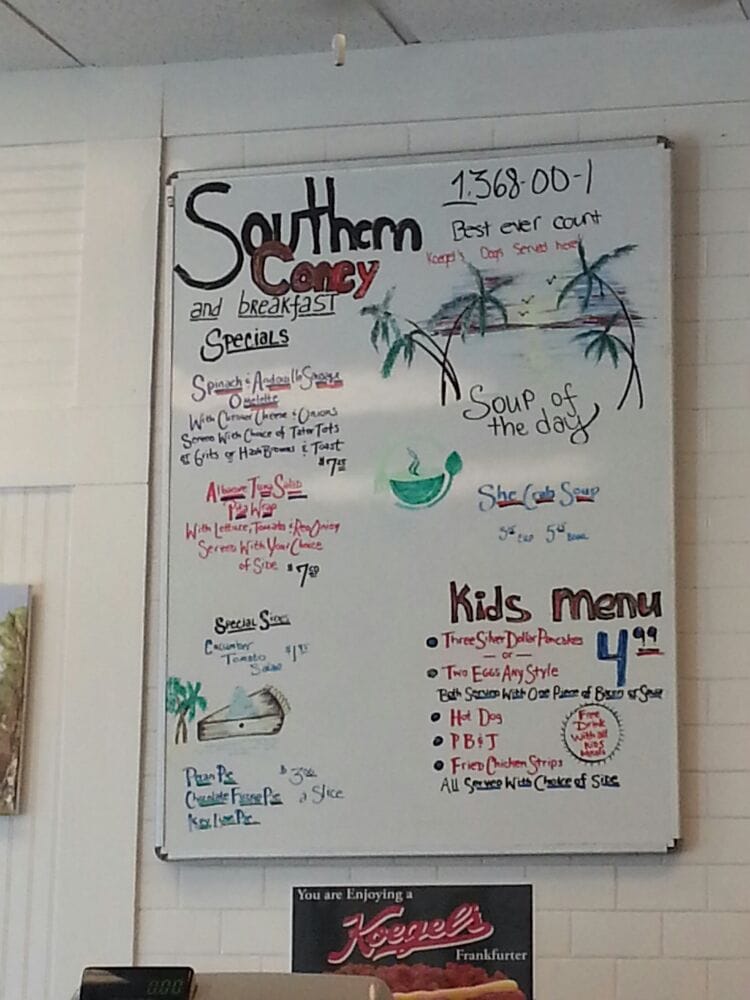 Southern
Coney
and breakfast
Specials
Spinach & Andouille Sausage
Omelette
With Cheese & Onions
Served With Choice of Tater Tots
or Grits or Hash Browns & Toast
Albacore Tuna Salad
Pita Wrap
With Lettuce, Tomato & Red Onion
Served With Your Choice
of Side $7.50
Special Sides
Cucumber
Tomato
Salad
Pecan Pie $3.00
Chocolate Fudge Pie a Slice
Key Lime Pie
1,368-00-1
Best ever count
Koegel's Dogs Served here!
Soup of
the day
She Crab Soup
Cup Bowl
Kids menu
Three Silver Dollar Pancakes
— or —
Two Eggs Any Style
4.99
Both Served With One Piece of Bacon or Saus
Hot Dog
PB&J
Fried Chicken Strips
All Served With Choice of Side
Free
Drink
With all
Kids
Meals
You are Enjoying a
Koegel's
Frankfurter
0.00